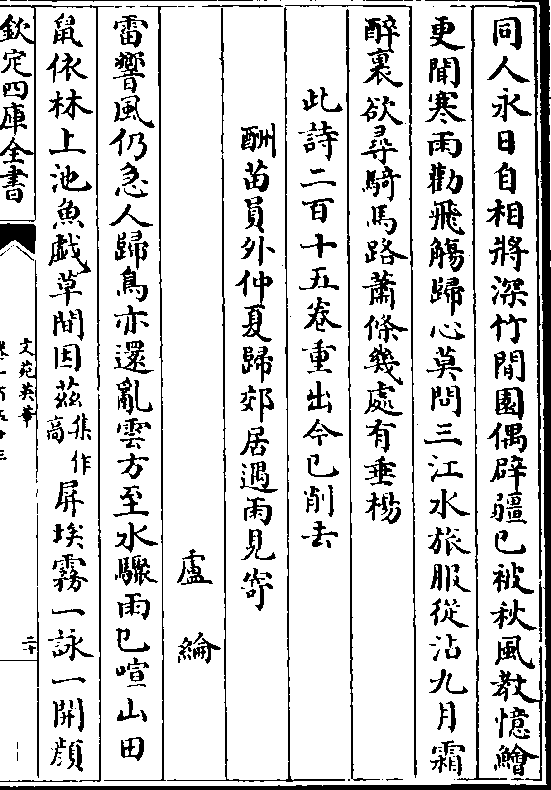 同人永日自相將深竹閒園偶辟疆已被秋風敎憶鱠
更聞寒雨勸飛觴歸心莫問三江水旅服從沾九月霜
醉裏欲尋騎馬路蕭條幾處有垂楊
此詩二百十五卷重出今已削去
酬苗員外仲夏歸郊居遇雨見寄
盧綸
雷響風仍急人歸鳥亦還亂雲方至水驟雨已喧山田
鼠依林上池魚戯草間因茲集作高屏埃霧一詠一開顔
欽定四庫全書
文苑英華
卷一百五十三
二十